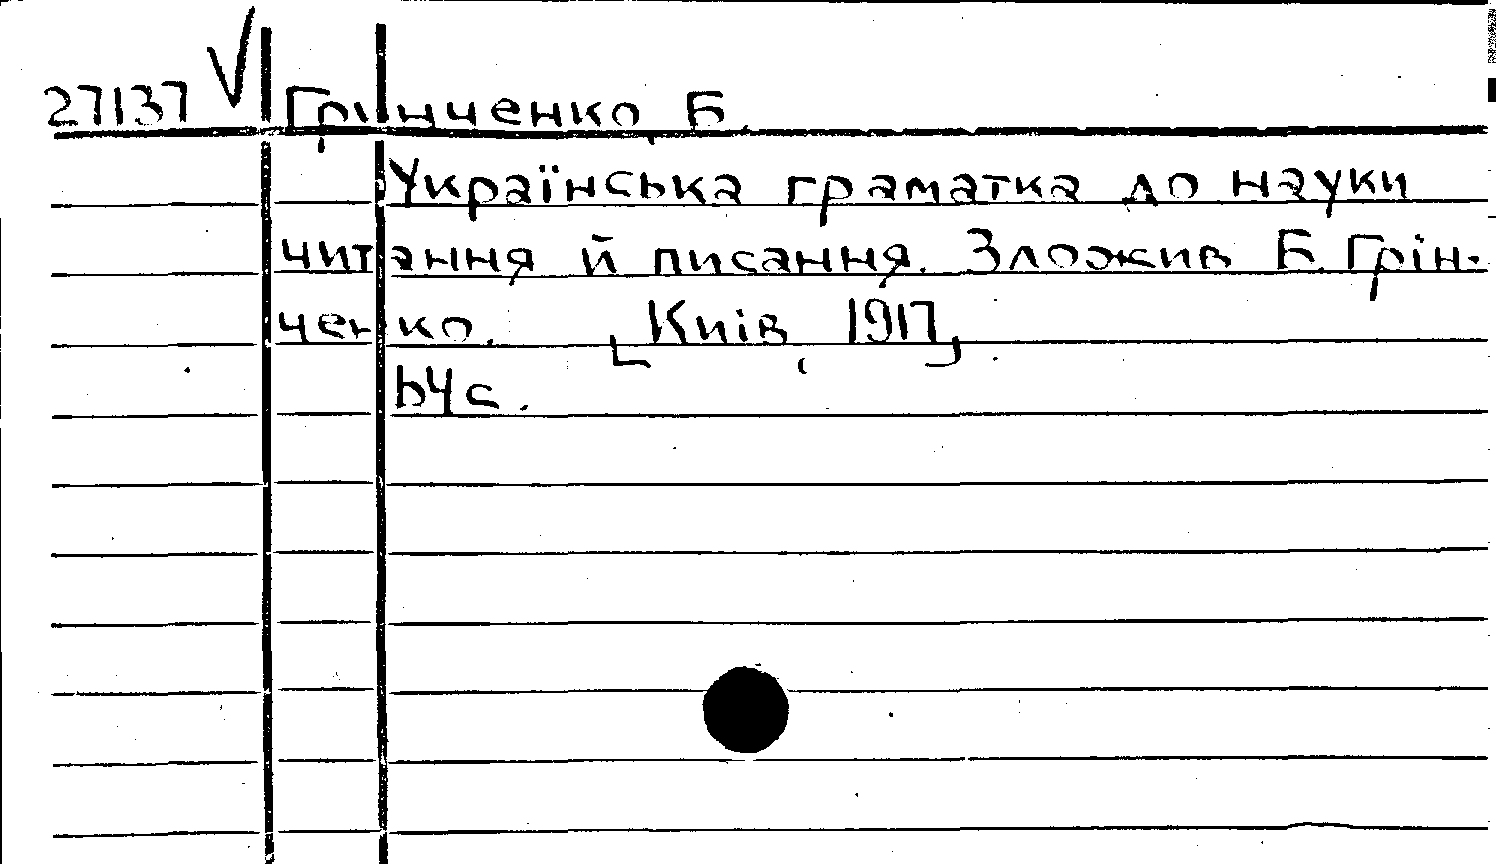 27137 √ Грінченко Б.
Українська граматка до науки
читання й писання. Зложив Б. Грін-
ченко. [Київ, 1917]
64с.